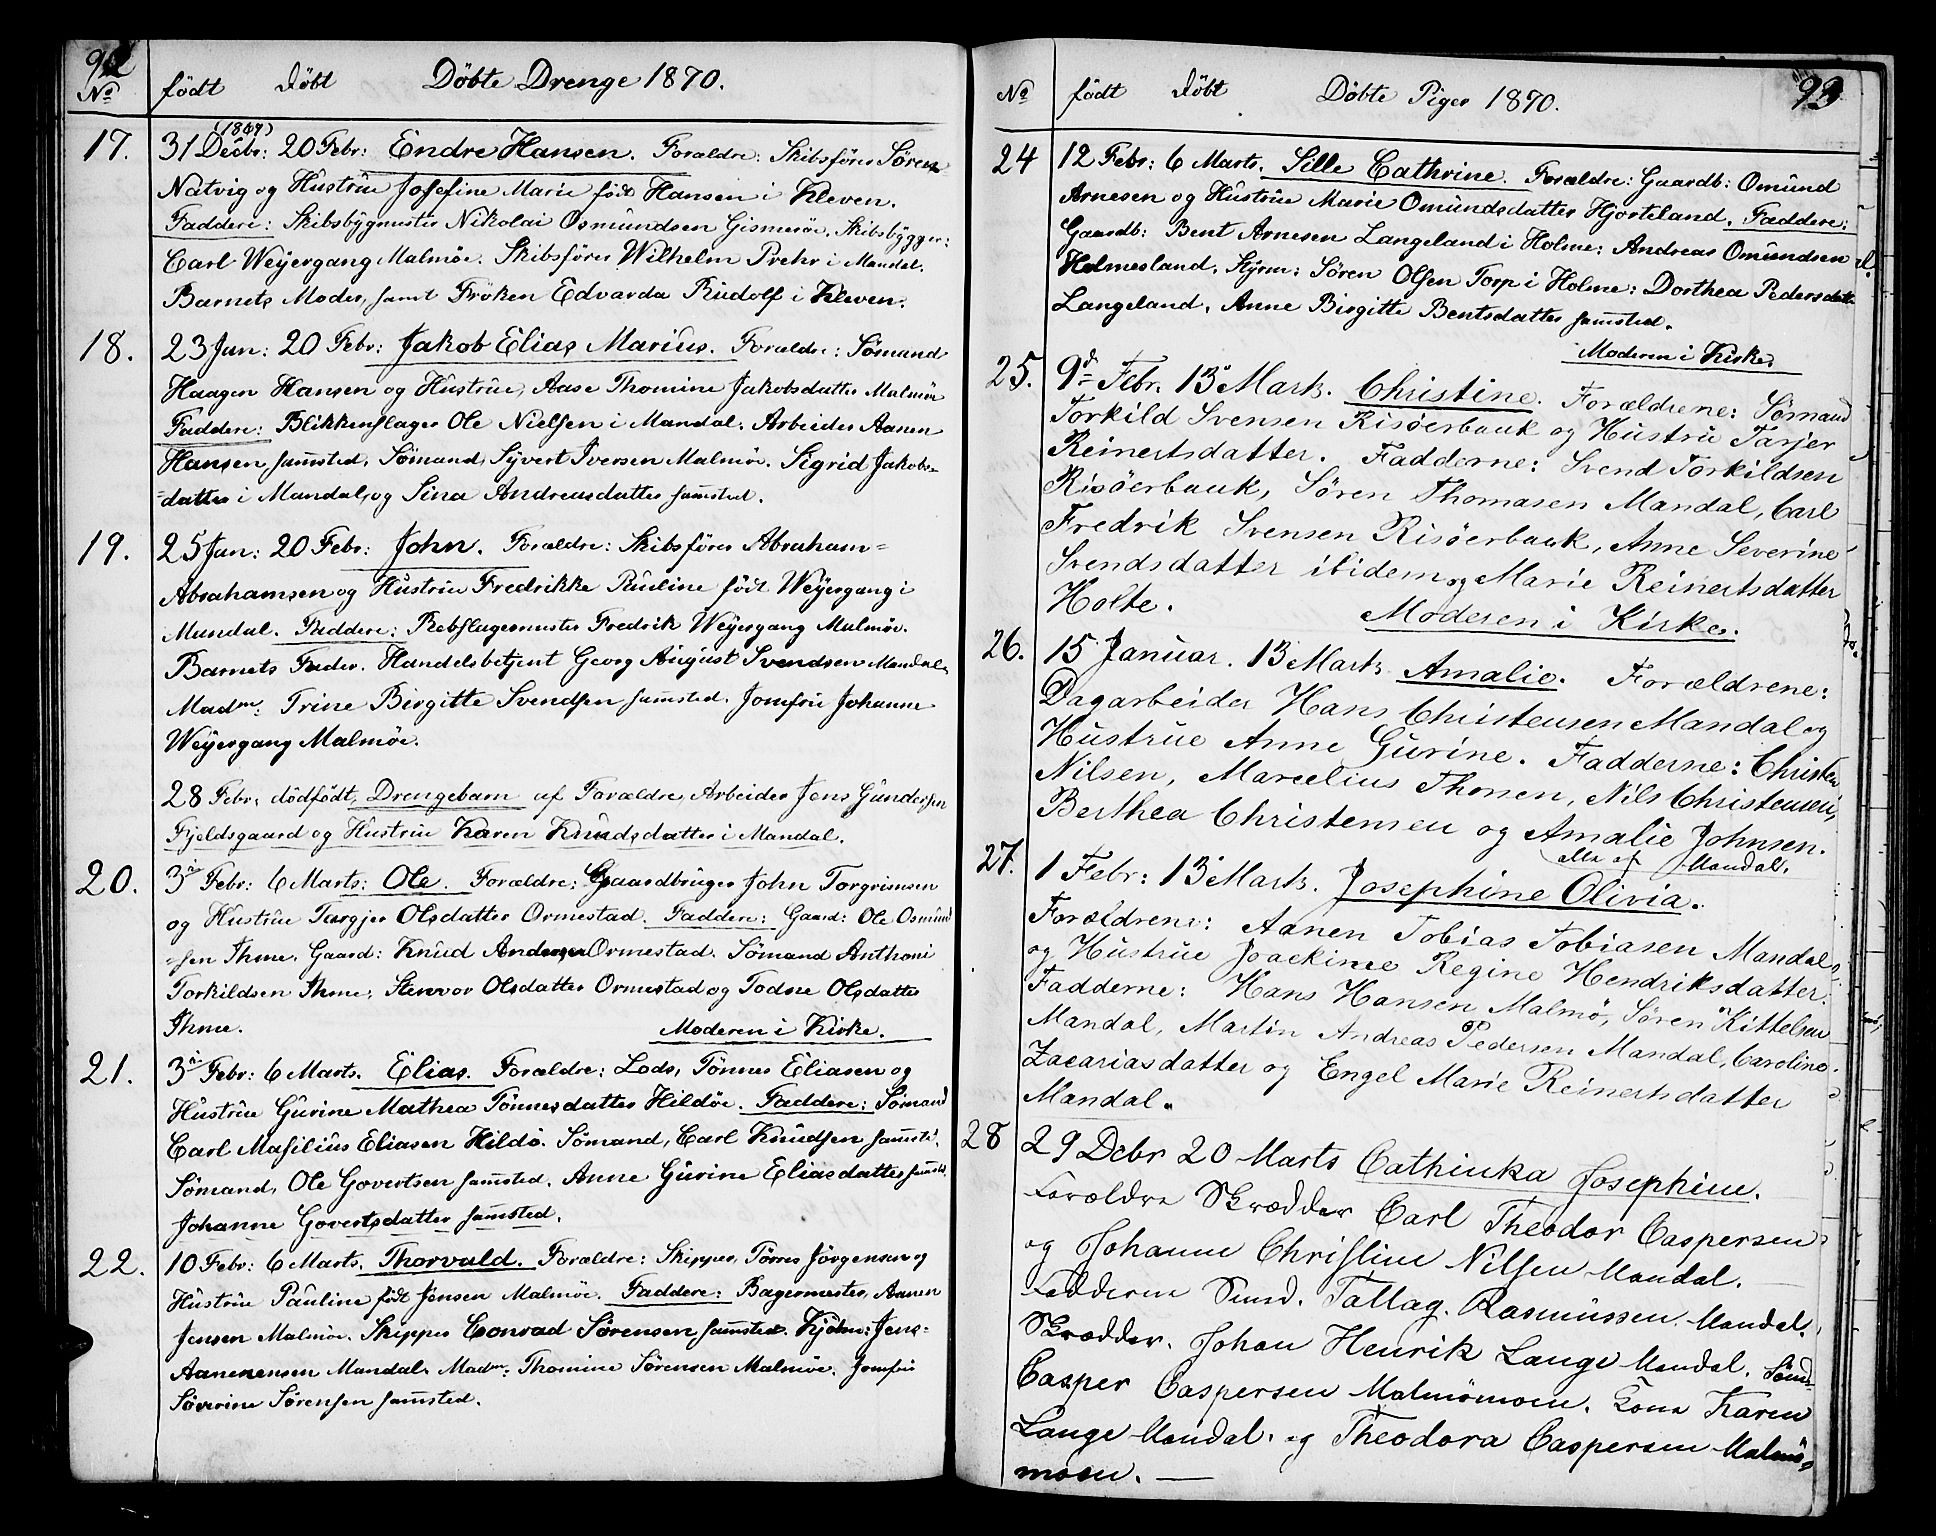 92
No født Døbt Døbte Drenge 1870.
(1869)
17. 31 Decbr: 20 Febr: Endre Hansen. Forældre: Skibsfører Søren
Natvig og Hustrüe Josefine Marie født Hansen i Kleven.
Faddere: Skibsbygmester Nikolai Osmundsen Gismerøe. Skibsbygger:
Carl Weyergang Malmøe. Skibsfører Wilhelm Prehr i Mandal.
Barnets Moder, samt Frøken Edvarda Rüdolf i Kleven.
18. 23 Jan: 20 Febr: Jakob Elias Marius. Forældre: Sømand
Haagen Hansen og Hustrüe, Aase Thomine Jakobsdatter Malmøe
Faddere: Blikkenslager Ole Nielsen i Mandal. Arbeider Aanen
Hansen, samsted. Sømand, Syvert Iversen Malmøe. Sigrid Jakobs-
=datter i Mandal, og Sina Andreasdatter samsted.
19. 25 Jan: 20 Febr: John. Forældre: Skibsfører Abraham=
Abrahamsen og Hustrüe Fredrikke Pauline født Weyergang i
Mandal. Faddere: Rebslagermester Fredrik Weyergang Malmøe.
Barnets Fader. Handelsbetjent Georg August Svendsen Mandal.
Madm: Trine Birgitte Svendsen samsted. Jomfrü Johanne
Weyergang Malmøe.
28 Febr: dødfødt, Drengebarn af Forældre, Arbeider Jens Gundersen
Fjeldsgaard og Hustrüe Karen Knudsdatter i Mandal.
20. 3de Febr: 6 Marts: Ole. Forældre: Gaardbruger John Torgrimsen
og Hustrüe Targjer Olsdatter Ormestad. Faddere: Gaard: Ole Osmund
=sen Ihme. Gaard: Knud Andersen Ormestad. Sømand Anthoni
Torkildsen Ihme, Stenvor Olsdatter Ormestad og Todne Olsdatter
Ihme. Moderen i Kirke.
21. 3de Febr: 6 Marts. Elias. Forældre: Lods, Tønnes Eliasen og
Hustrüe Gurine Mathea Tønnesdatter Hildøe. Faddere: Sømand
Carl Masilius Eliasen Hildø. Sømand, Carl Knudsen samsted.
Sømand, Ole Govertsen samsted. Anne Gurine Eliasdatter samsted.
Johanne Govertsdatter samsted.
22. 10 Febr: 6 Marts. Thorvald. Forældre: Skipper, Tørres Jørgensen og
Hustrüe Pauline født Jensen Malmøe. Faddere: Bagermester, Aanen
Jensen Malmøe. Skipper Conrad Sørensen samsted. Kjøbm: Jens=
Aanensen Mandal. Madm: Thomine Sørensen Malmøe. Jomfrü
Severine Sørensen samsted.
93
No født Døbt Døbte Piger 1870.
24 12 Febr: 6 Marts. Sille Cathrine. Forældre: Gaardb: Omund
Arnesen og Hustrüe Marie Omundsdatter Hjorteland. Faddere:
Gaardb: Bent Arnesen Langeland i Holme: Andreas Omundsen
Holmesland. Styrm: Søren Olsen Torp i Holme: Dorthea Pedersdatt
Langeland. Anne Birgitte Bentsdatter samsted.
Moderen i Kirke.
25. 9de Febr. 13 Marts. Christine. Forældrene: Sømand
Torkild Svensen Risøerbank og Hustru Tarjer
Reinertsdatter. Fadderne: Svend Torkildsen
Risöerbank, Sören Thomasen Mandal, Carl
Fredrik Svensen Risöerbank, Anne Severine
Svendsdatter ibidem og Marie Reinertsdatter
Holte. Moderen i Kirke.
26. 15 Januar. 13 Marts. Amalie. Forældrene:
Dagarbeider Hans Christensen Mandal og
Hustrüe Anne Gurine. Fadderne: Christen
Nilsen, Marcelius Thonen, Nils Christensen,
Berthea Christensen og Amalie Johnsen.
alle af Mandal.
27. 1 Febr: 13 Marts. Josephine Olivia.
Forældrene: Aanen Tobias Tobiasen Mandal
og Hustrüe Joackime Regine Hendriksdatter.
Fadderne: Hans Hansen Malmø, Sören Kittelsen
Mandal, Martin Andreas Pedersen Mandal, Caroline
Zacariasdatter og Engel Marie Reinertsdatter
Mandal.
28 29 Debr 20 Marts Cathinka Josephine.
Forældre Skrædder Carl Theodor Caspersen
og Johanne Christine Nilsen Mandal.
Fadderne Sømd. Tallag. Rasmussen. Mandal.
Skrædder. Johan Henrik Lange Mandal. Sømd
Casper Caspersen Malmömoen. Kone Karen
Lange Mandal. og Theodora Caspersen Malmö=
moen.